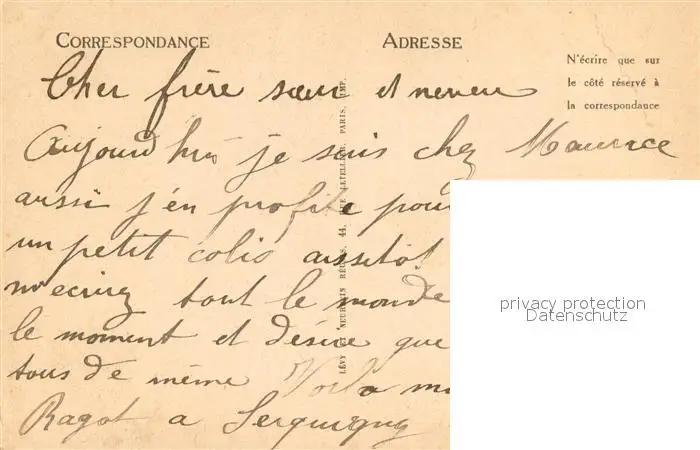 CORRESPONDANCE
ADRESSE
N'écrire que sur
le côté réservé à
la correspondance
Cher frère sœur et neveu
Aujourd'hui je suis chez Maurice
aussi j'en profite pour
un petit colis aussitôt
m'ecrirez tout le monde
le moment et désire que
tous de même Voila m
Ragot a Serquigny
LÉVY ET NEURDEIN RÉUNIS, 44, RUE LETELLIER, PARIS, IMP.
privacy protection
Datenschutz